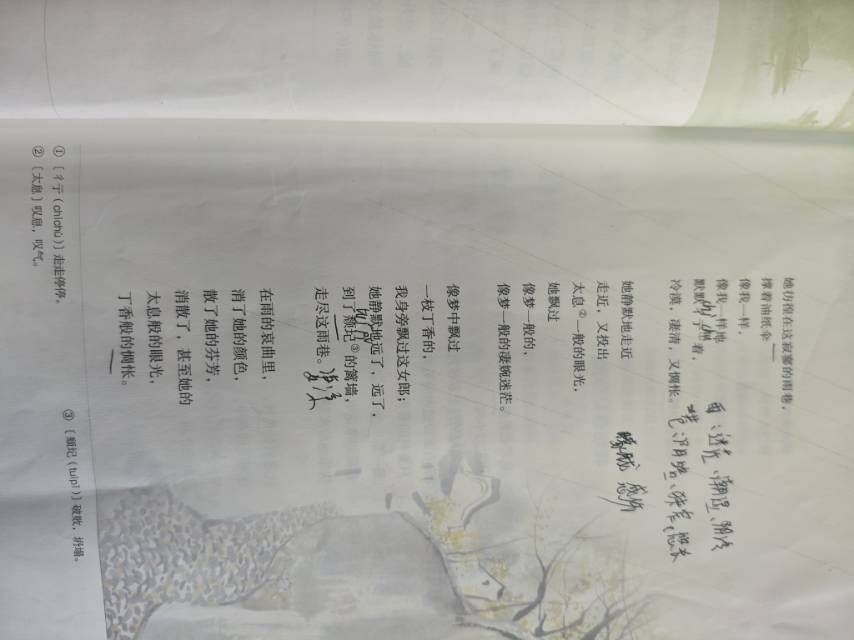 她彷徨在这寂寥的雨巷，
撑着油纸伞
像我一样，
像我一样地
默默彳亍①着，
冷漠，凄清，又惆怅。
她静默地走近
走近，又投出
太息②一般的眼光，
她飘过
像梦一般的，
像梦一般的凄婉迷茫。
像梦中飘过
一枝丁香的，
我身旁飘过这女郎；
她静默地远了，远了，
到了颓圮③的篱墙，
走尽这雨巷。
在雨的哀曲里，
消了她的颜色，
散了她的芬芳，
消散了，甚至她的
太息般的眼光，
丁香般的惆怅。
①〔彳亍（chìchù）〕走走停停。
②〔太息〕叹息，叹气。
③〔颓圮（tuípǐ）〕破败，坍塌。